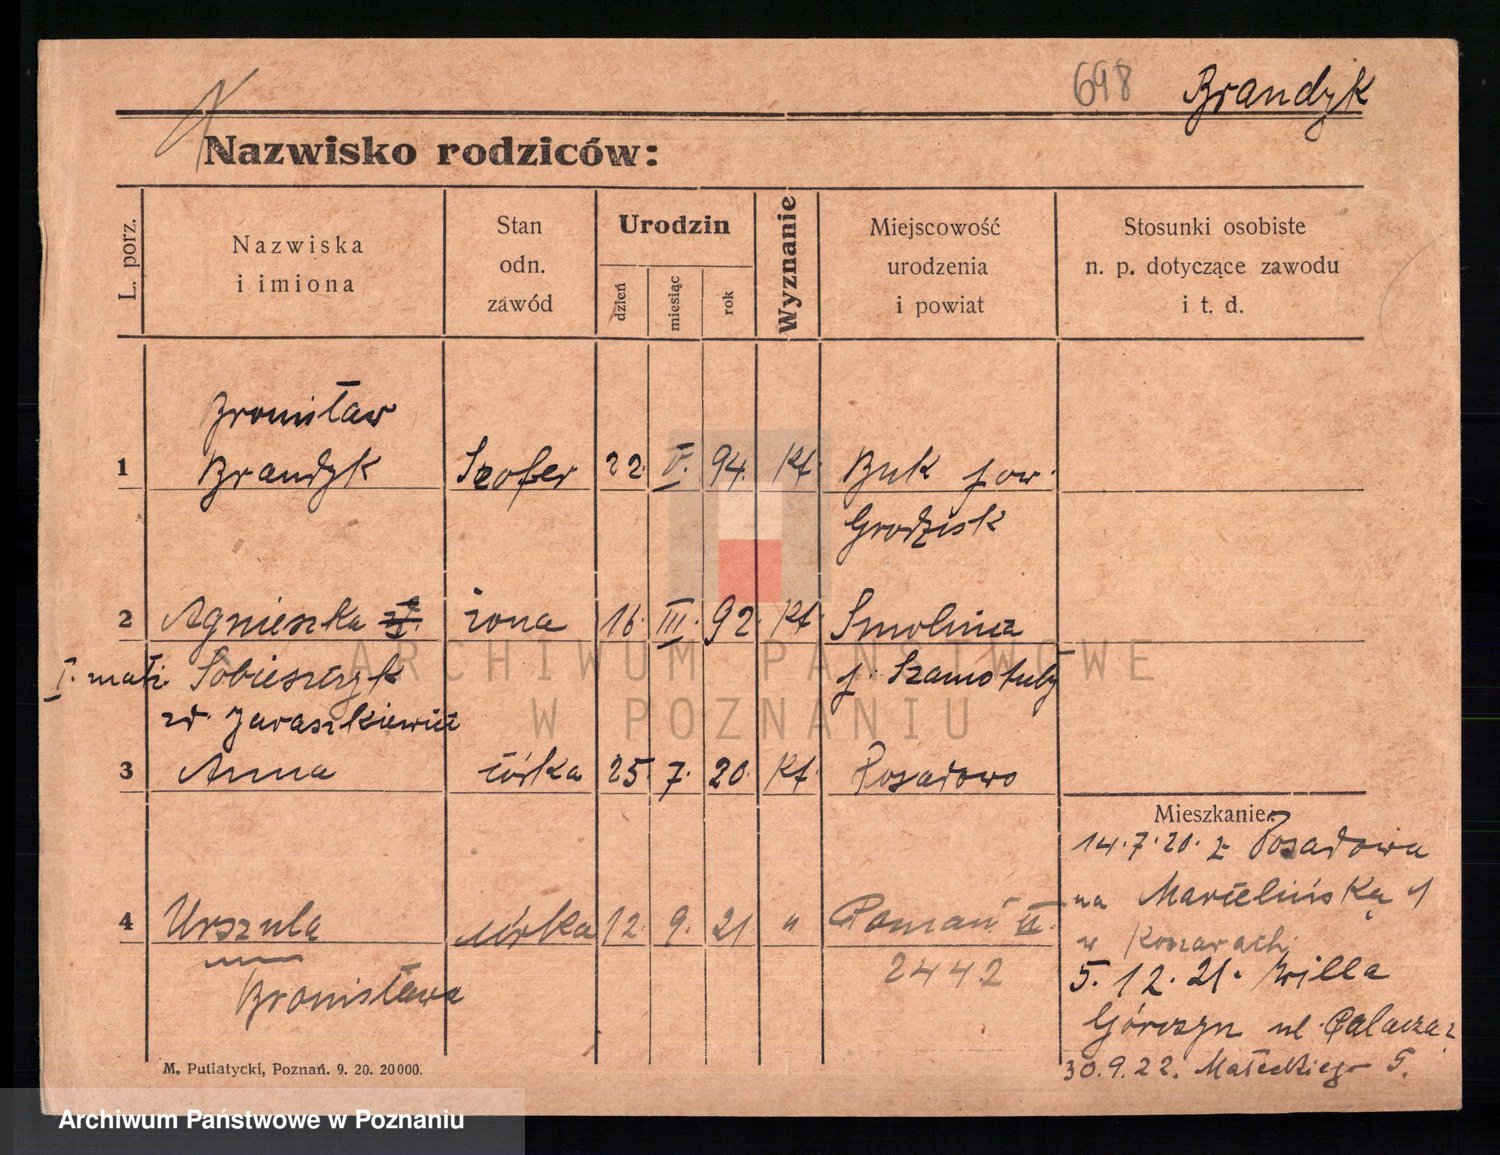 698 Brandyk
Nazwisko rodziców:
L. porz.
Nazwiska
i imiona
Stan
odn.
zawód
Urodzin
dzień
miesiąc
rok
Wyznanie
Miejscowość
urodzenia
i powiat
Stosunki osobiste
n. p. dotyczące zawodu
i t. d.
Bronisław
1 Brandyk Szofer 22. V. 94. Kt. Buk pow.
Grodzisk
2 Agnieszka żona 16. III. 92. Kt. Smolnica
I. małż. Sobieszczyk p. Szamotuły
zd. Jaraszkiewicz
3 Anna córka 25. 7. 20. Kt. Posadowo
Mieszkanie.
14.7.20. z Posadowa
na Marcelińską
4 Urszula córka 12. 9. 21 " Poznań II.
w Koszarach
2442
Bronisława
5.12.21. Willa
Górczyn ul.
30.9.22. Małeckiego 5.
M. Putiatycki, Poznań. 9. 20. 20000.
ARCHIWUM PAŃSTWOWE
W POZNANIU
Archiwum Państwowe w Poznaniu